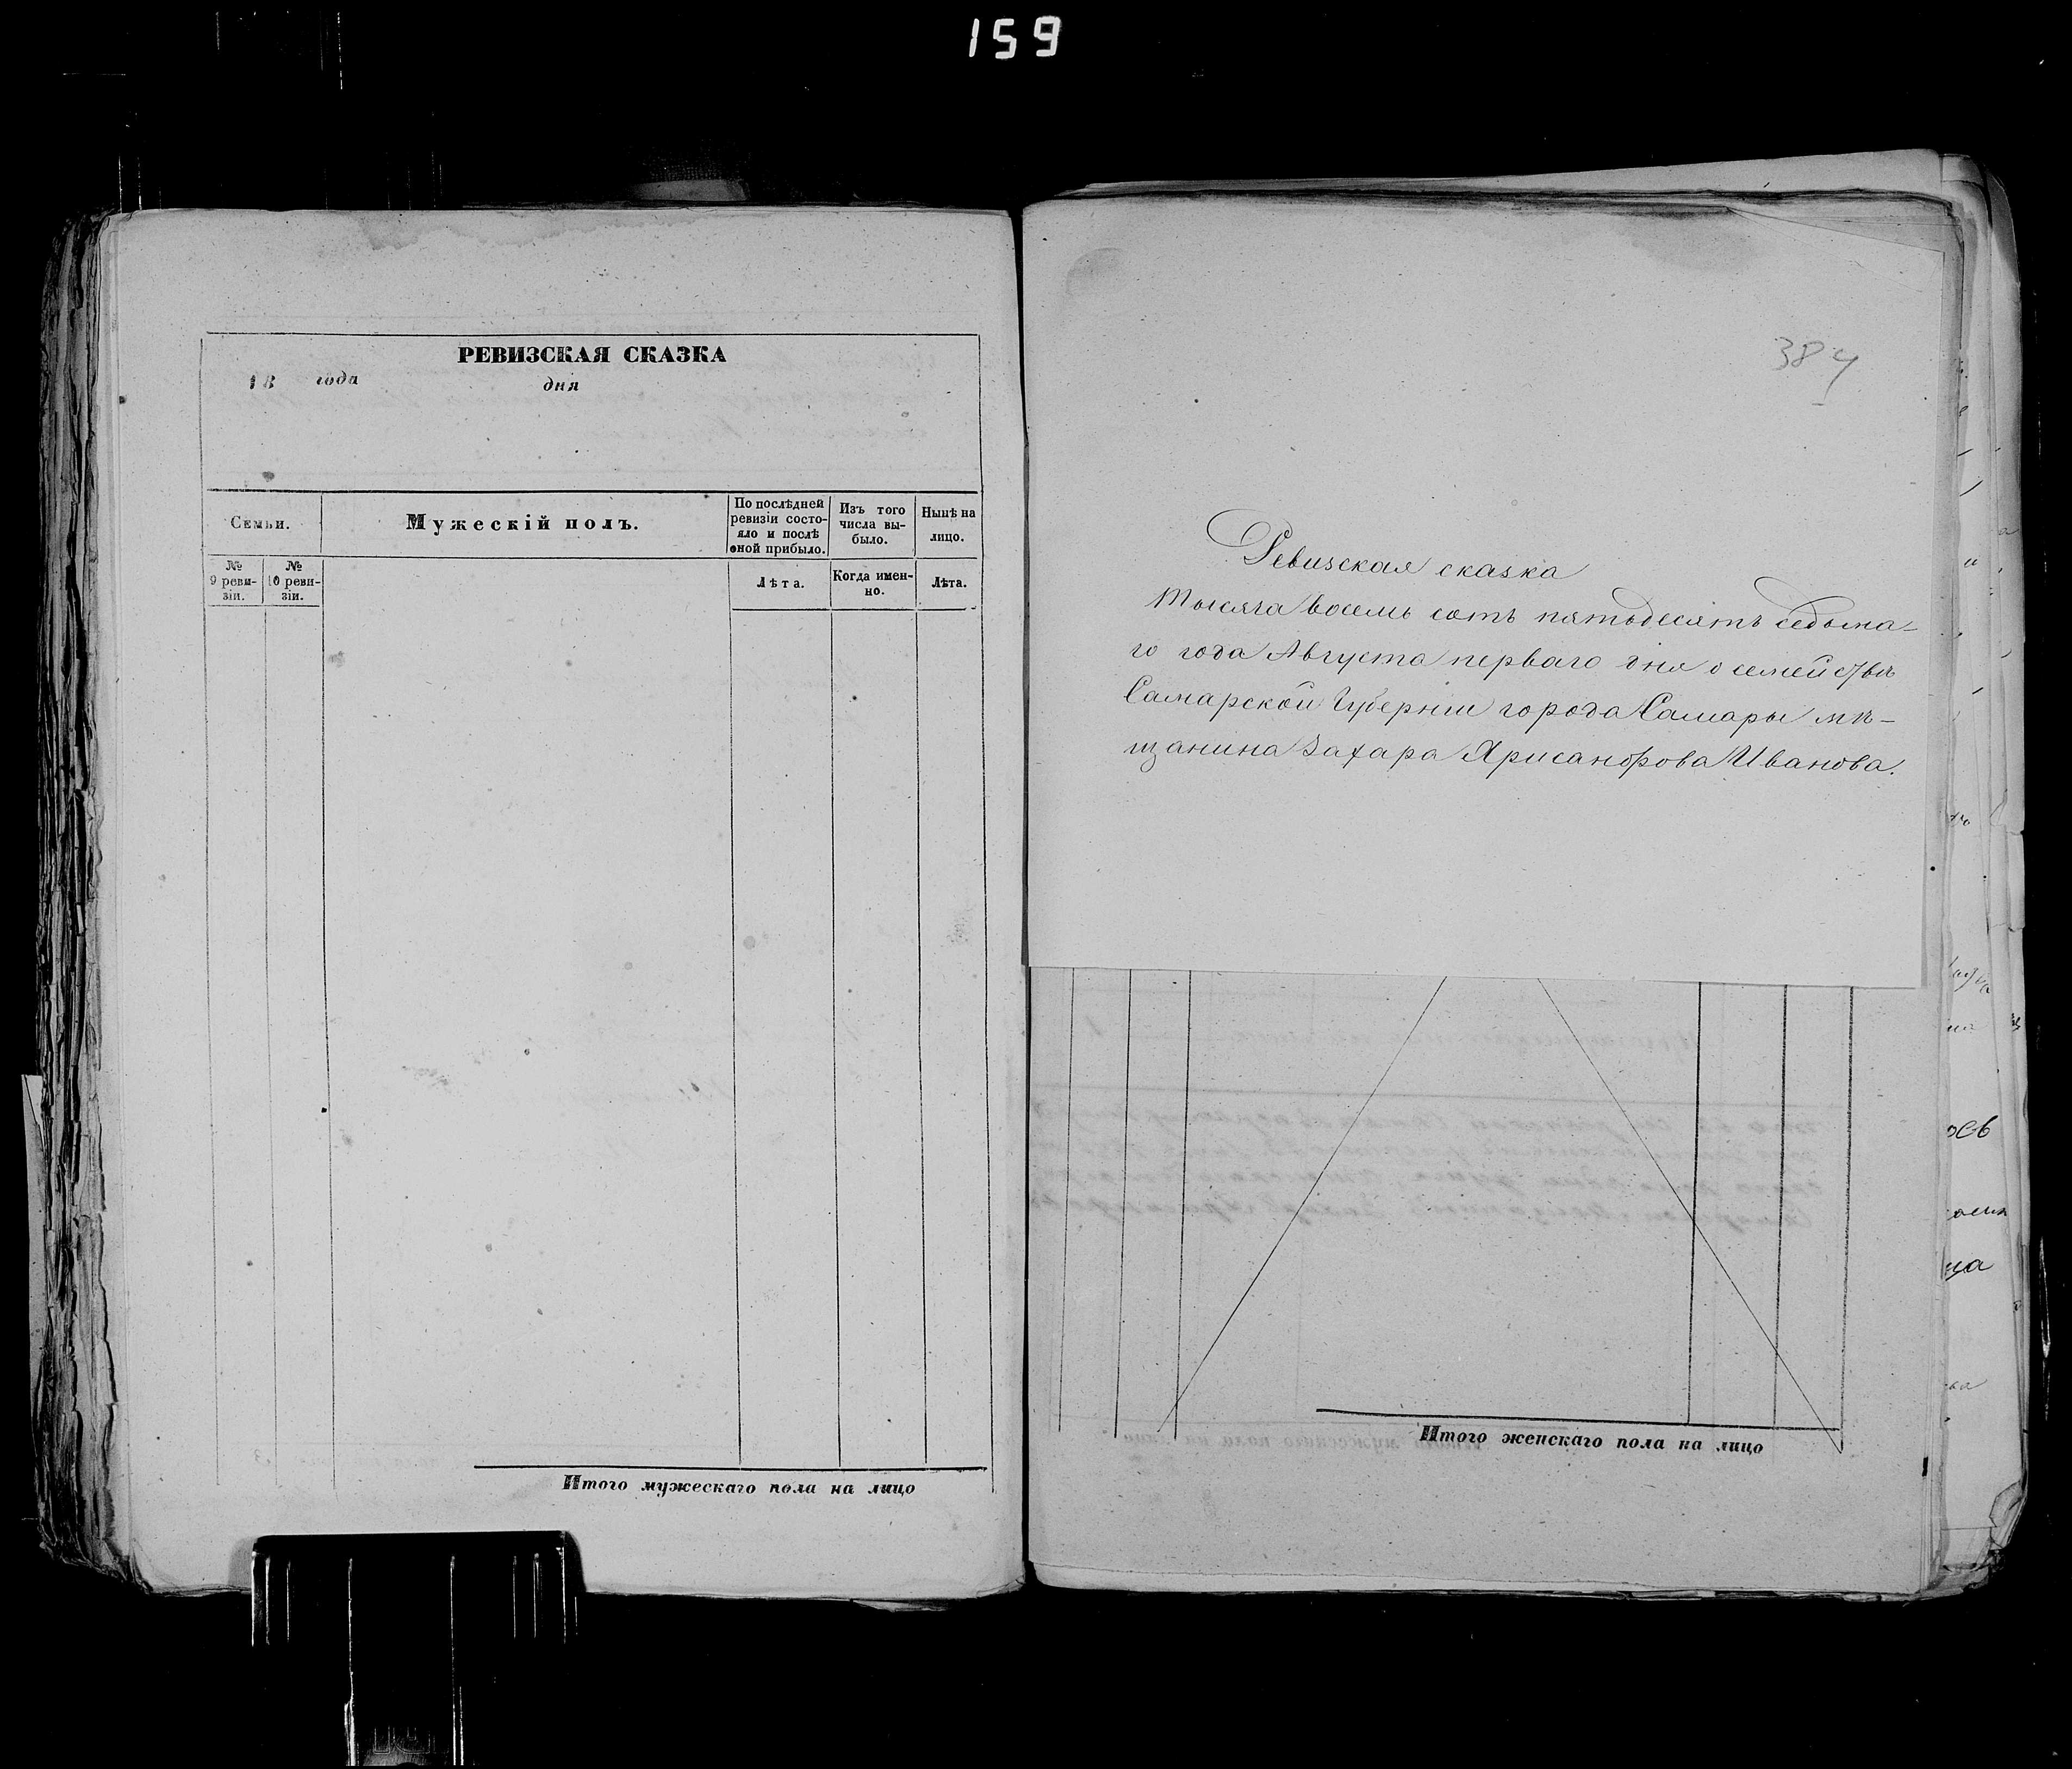 159
РЕВИЗСКАЯ СКАЗКА
18 года дня
Семьи.
Мужескій полъ.
По послѣдней ревизіи состо-
яло и послѣ оной прибыло.
Изъ того числа вы-
было.
Нынѣ на лицо.
№ 9 реви-
зіи.
№ 10 реви-
зіи.
Лѣта.
Когда имен-
но.
Лѣта.
Итого мужескаго пола на лицо
384
Ревизская сказка
Тысяча восемь сотъ пятьдесятъ седьма-
го года Августа перваго дня о семействѣ
Самарской Губерніи города Самары мѣ-
щанина Захара Хрисанфова Иванова.
Итого женскаго пола на лицо